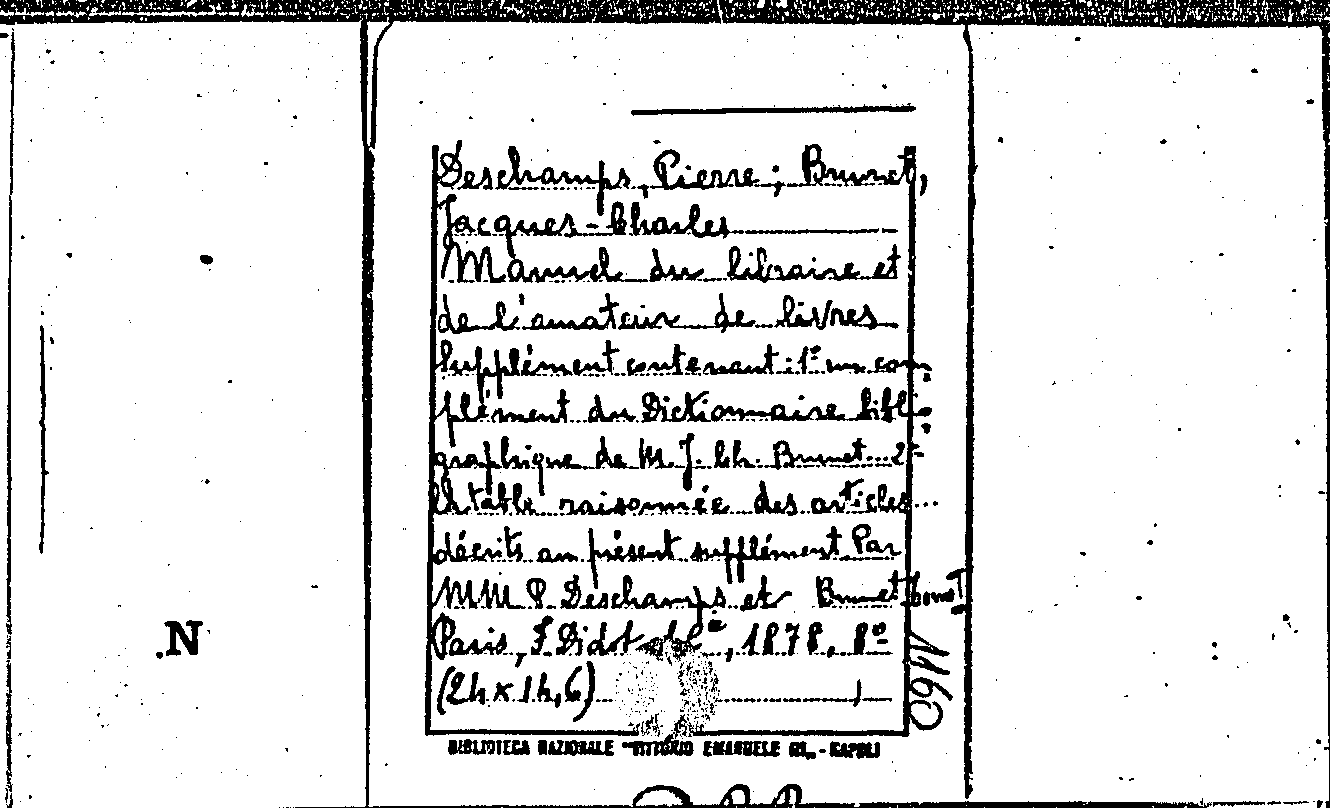 Deschamps, Pierre; Brunet,
Jacques-Charles
Manuel du libraire et
de l'amateur de livres
Supplément contenant: 1º un com-
plément du Dictionnaire biblio-
graphique de M. J. Ch. Brunet... 2º
La table raisonnée des articles...
décrits au présent supplément Par
MM. P. Deschamps et Brunet
Paris, F. Didot et C.ie, 1878, 8º
(24 x 14,6)
1160
N
BIBLIOTECA NAZIONALE "VITTORIO EMANUELE III" - NAPOLI